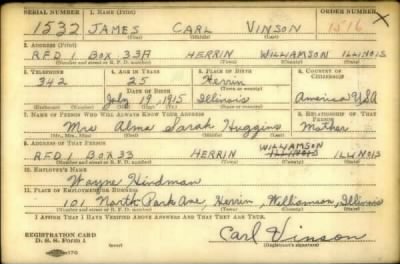 SERIAL NUMBER 1. NAME (Print) ORDER NUMBER
1532 JAMES CARL VINSON 1516
(First) (Middle) (Last)
2. ADDRESS (Print)
RFD 1 BOX 33A HERRIN WILLIAMSON ILLINOIS
(Number and street or R. F. D. number) (Town) (County) (State)
3. TELEPHONE 4. AGE IN YEARS 5. PLACE OF BIRTH 6. COUNTRY OF CITIZENSHIP
342 25 Herrin
DATE OF BIRTH (Town or county)
July 19, 1915 Illinois America USA
(Exchange) (Number) (Mo.) (Day) (Yr.) (State or country)
7. NAME OF PERSON WHO WILL ALWAYS KNOW YOUR ADDRESS 8. RELATIONSHIP OF THAT PERSON
Mrs Alma Sarah Huggins Mother
(Mr., Mrs., Miss) (First) (Middle) (Last)
9. ADDRESS OF THAT PERSON
WILLIAMSON
RFD 1 BOX 33 HERRIN ILLINOIS ILLINOIS
(Number and street or R. F. D. number) (Town) (County) (State)
10. EMPLOYER'S NAME
Wayne Hindman
11. PLACE OF EMPLOYMENT OR BUSINESS
101 North Park Ave, Herrin, Williamson, Illinois
(Number and street or R. F. D. number) (Town) (County) (State)
I AFFIRM THAT I HAVE VERIFIED ABOVE ANSWERS AND THAT THEY ARE TRUE.
REGISTRATION CARD
D. S. S. Form 1 Carl Vinson
(Registrant's signature)